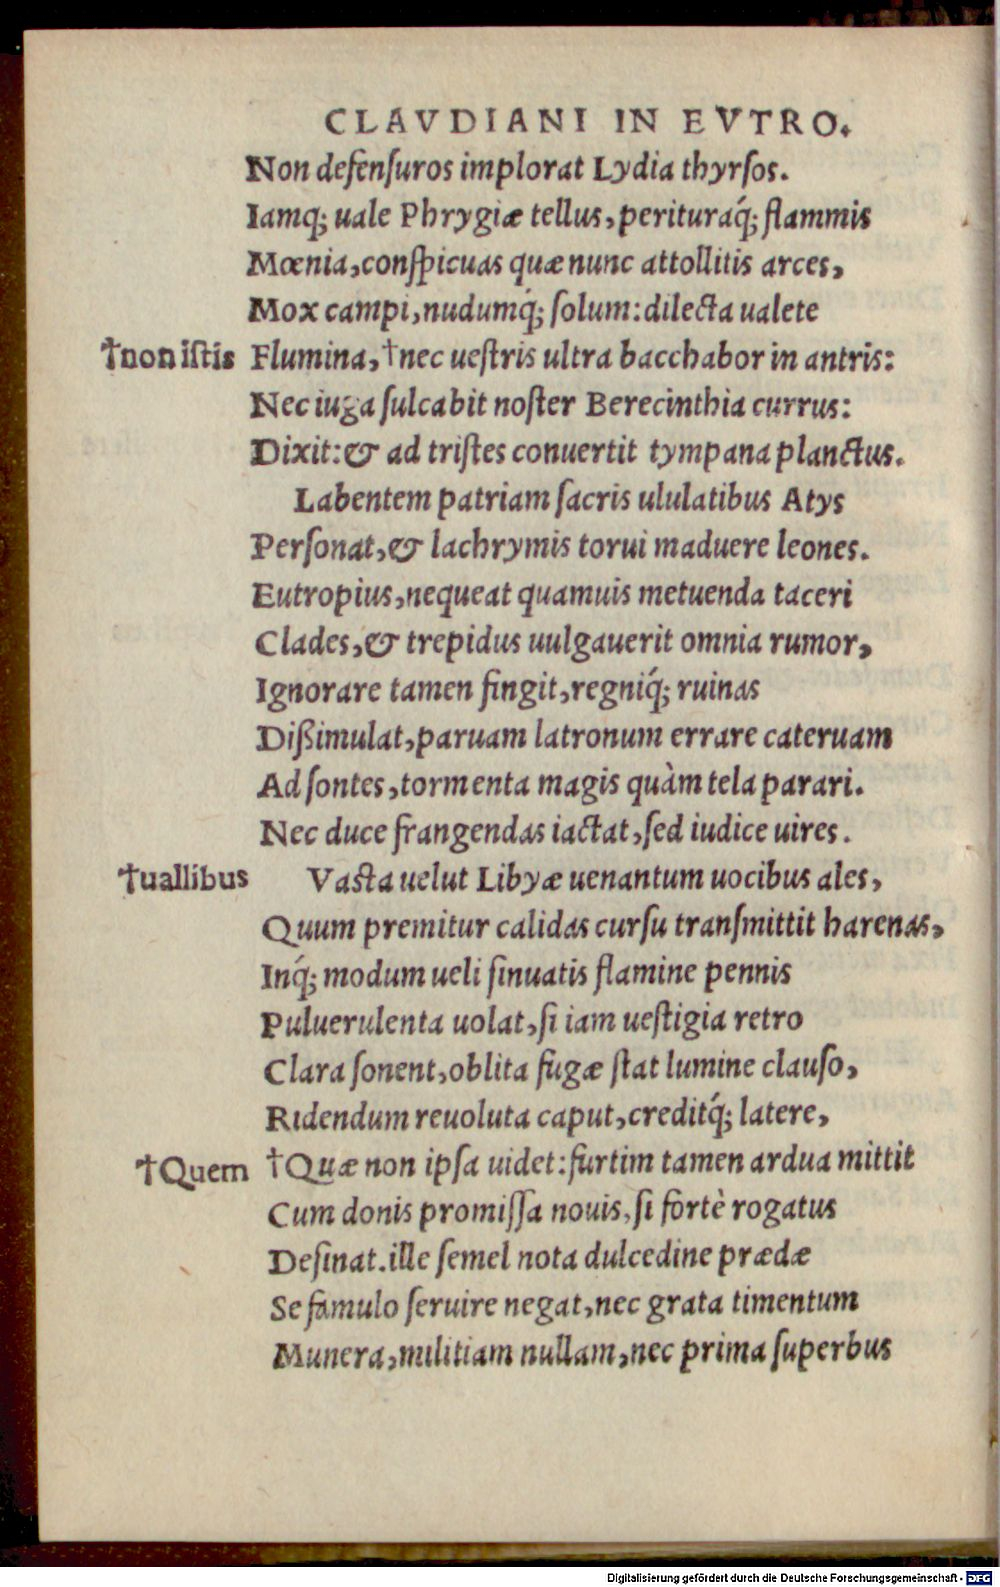 CLAVDIANI IN EVTRO.
Non defenſuros implorat Lydia thyrſos.
Iamq́; uale Phrygiæ tellus, perituraq́; flammis
Mœnia, conſpicuas quæ nunc attollitis arces,
Mox campi, nudumq́; ſolum: dilecta ualete
†non iſtis Flumina, †nec ueſtris ultra bacchabor in antris:
Nec iuga ſulcabit noſter Berecinthia currus:
Dixit: & ad triſtes conuertit tympana planctus.
Labentem patriam ſacris ululatibus Atys
Perſonat, & lachrymis torui maduere leones.
Eutropius, nequeat quamuis metuenda taceri
Clades, & trepidus uulgauerit omnia rumor,
Ignorare tamen fingit, regniq́; ruinas
Dißimulat, paruam latronum errare cateruam
Ad ſontes, tormenta magis quàm tela parari.
Nec duce frangendas iactat, ſed iudice uires.
†uallibus Vaſta uelut Libyæ uenantum uocibus ales,
Quum premitur calidas curſu tranſmittit harenas,
Inq́; modum ueli ſinuatis flamine pennis
Puluerulenta uolat, ſi iam ueſtigia retro
Clara ſonent, oblita fugæ ſtat lumine clauſo,
Ridendum reuoluta caput, creditq́; latere,
†Quem †Quæ non ipſa uidet: furtim tamen ardua mittit
Cum donis promiſſa nouis, ſi fortè rogatus
Deſinat. ille ſemel nota dulcedine prædæ
Se famulo ſeruire negat, nec grata timentum
Munera, militiam nullam, nec prima ſuperbus
Digitalisierung gefördert durch die Deutsche Forschungsgemeinschaft - DFG